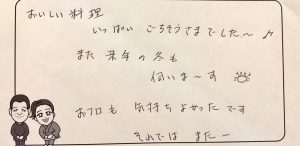 おいしい料理
いっぱい ごちそうさまでした～♪
また 来年の冬も
伺いま～す
お フロも 気持ち よかった です
それでは また ー